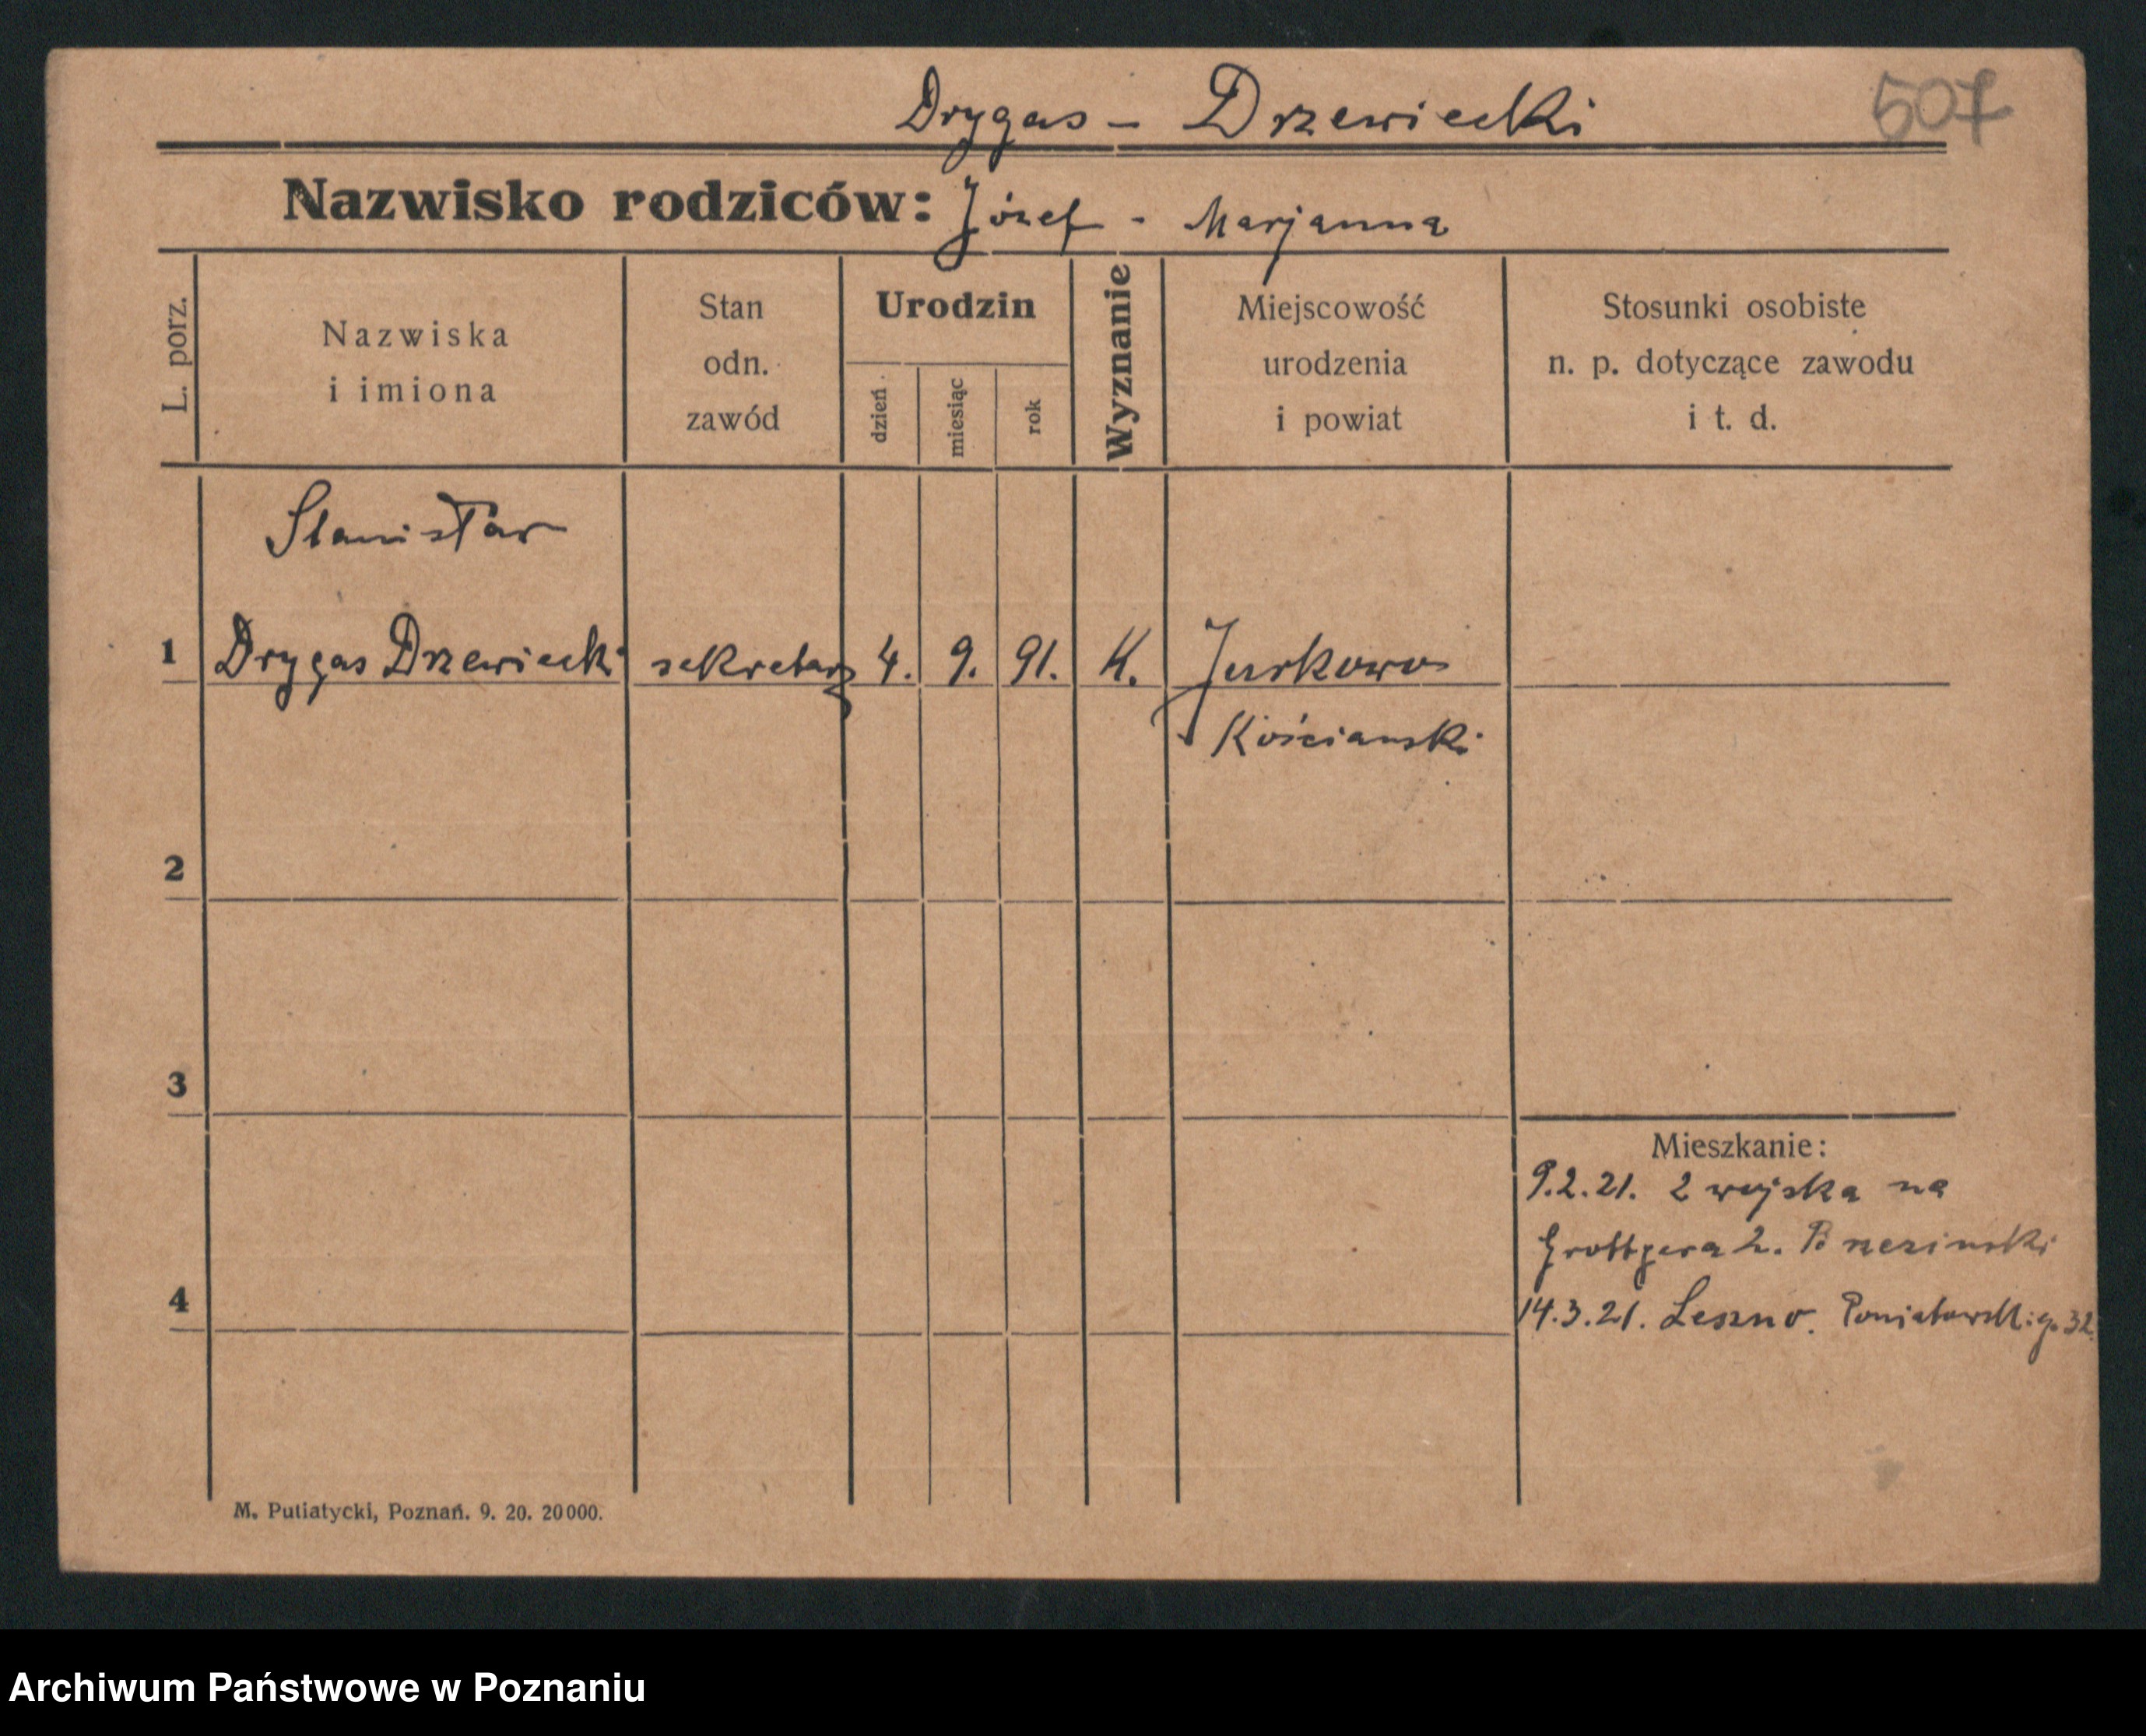 507
Drygas - Drzewiecki
Nazwisko rodziców: Józef - Marjanna
L. porz.
Nazwiska
i imiona
Stan
odn.
zawód
Urodzin
dzień
miesiąc
rok
Wyznanie
Miejscowość
urodzenia
i powiat
Stosunki osobiste
n. p. dotyczące zawodu
i t. d.
Stanisław
1 Drygas Drzewiecki sekretarz 4. 9. 91. K. Jurkowo
Kościański
2
3
Mieszkanie:
9.2.21. z wojska na
Grottgera 2.
4 14.3.21. Leszno. Poniatowskiego 32.
M. Putiatycki, Poznań. 9. 20. 20000.
Archiwum Państwowe w Poznaniu